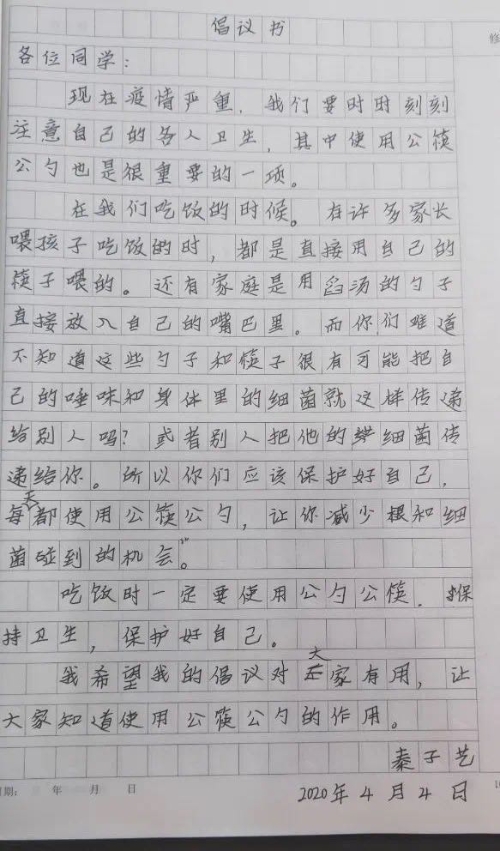 倡议书
各位同学：
现在疫情严重，我们要时时刻刻
注意自己的各人卫生，其中使用公筷
公勺也是很重要的一项。
在我们吃饭的时候。有许多家长
喂孩子吃饭的时，都是直接用自己的
筷子喂的。还有家庭是用舀汤的勺子
直接放入自己的嘴巴里。而你们难道
不知道这些勺子和筷子很有可能把自
己的唾味和身体里的细菌就这样传递
给别人吗？或者别人把他的细菌传
递给你。所以你们应该保护好自己，
每天都使用公筷公勺，让你减少根和细
菌碰到的机会。
吃饭时一定要使用公勺公筷，保
持卫生，保护好自己。
我希望我的倡议对大家有用，让
大家知道使用公筷公勺的作用。
秦子艺
2020年4月4日
日期： 年 月 日